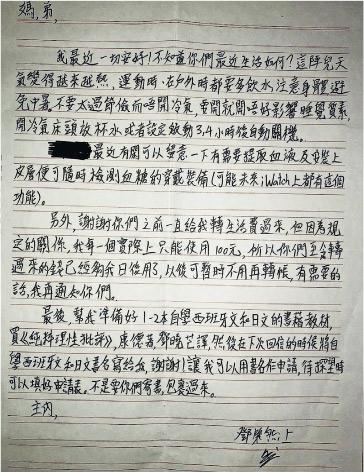 媽,弟,
我最近一切安好!不知道你們最近生活如何?這陣兒天
氣變得越來越熱,運動時、在戶外時都要多飲水,注意身體避
免中暑,不要太過節儉而唔開冷氣,要開就開唔好影響睡覺質素,
開冷氣床頭放杯水或者設定啟動3,4小時後自動關機。
最近有關可以留意一下有需要提取血液及安裝上
皮層便可隨時檢測血糖的穿戴裝備(可能未來iWatch上都有這個
功能)。
另外,謝謝你們之前一直給我轉生活費過來,但因為規
定的關係,我每一個實際上只能使用100元,所以你們至今轉
過來的錢已經夠我日後用了,以後可暫時不用再轉帳,有需要的
話,我再通知你們。
最後,幫我準備好1-2本自學西班牙文和日文的書籍教材,
買《純粹理性批評》,康德著,鄧曉芒譯,然後在下次回信的時候將自
學西班牙文和日文書名寫給我,謝謝!讓我可以用書名作申請,待
可以填好申請表。不是要你們寄書,包裹過來。
主內,
鄧棨然上